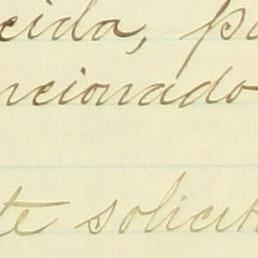 cida, pa
ncionado
te solicit